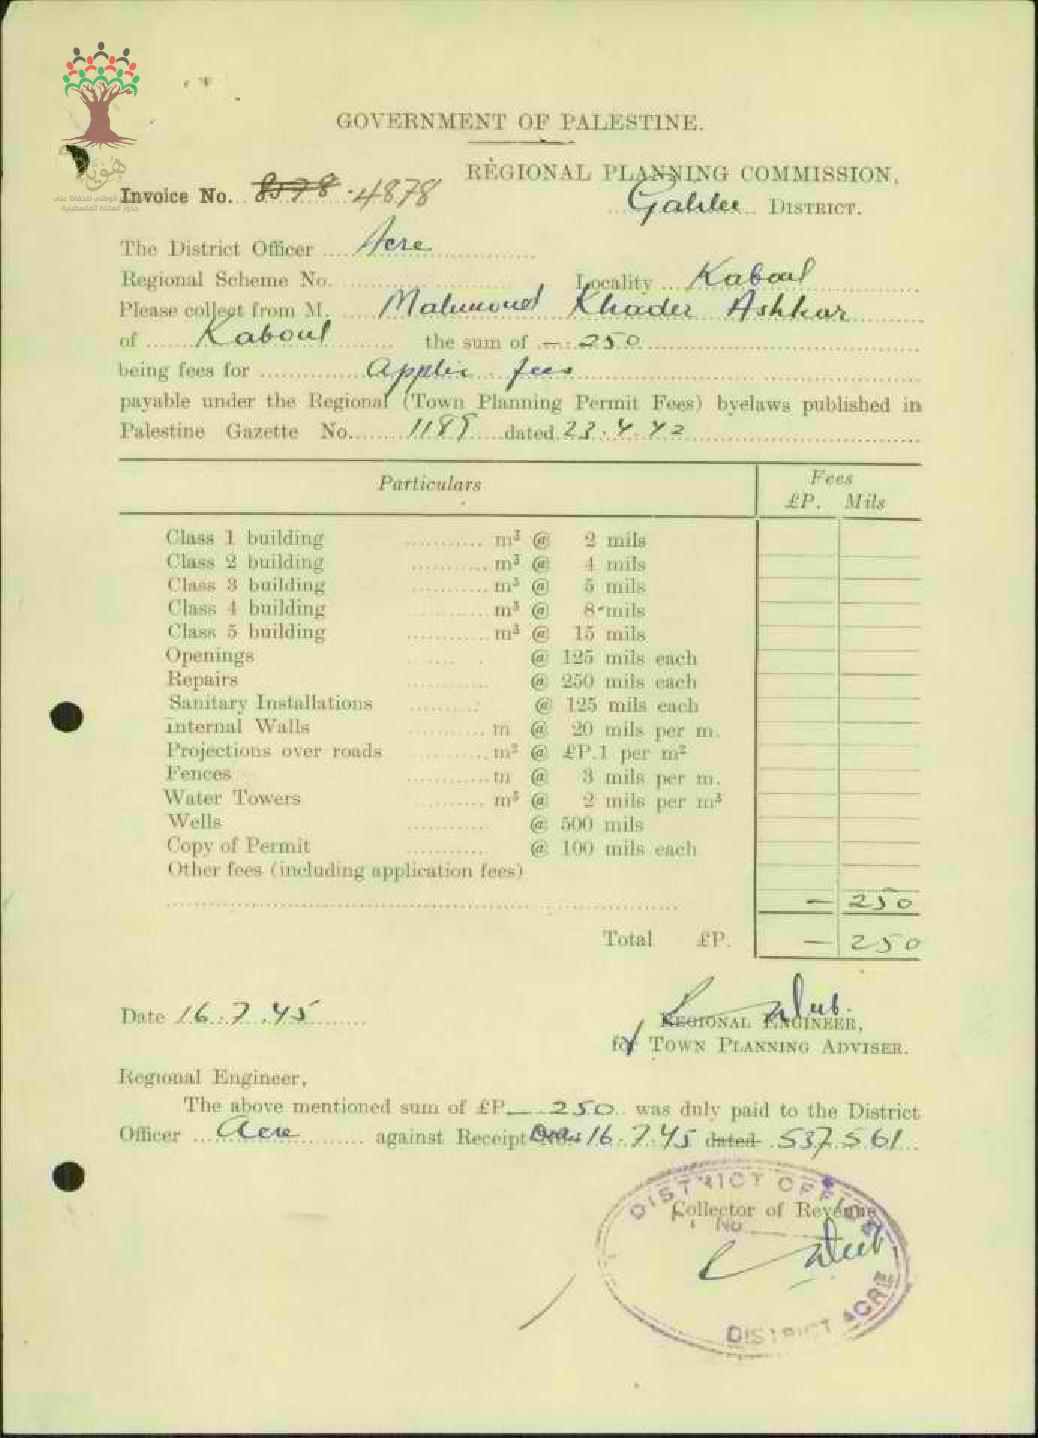 GOVERNMENT OF PALESTINE.
REGIONAL PLANNING COMMISSION,
Invoice No. 8578 4878
Galilee DISTRICT.
هوية
الوطني للحفاظ على
جذور العائلة الفلسطينية
The District Officer Acre
Regional Scheme No. Locality Kaboul
Please collect from M. Mahmoud Khader Ashkar
of Kaboul the sum of — 250
being fees for Applic. fees
payable under the Regional (Town Planning Permit Fees) byelaws published in
Palestine Gazette No. 1189 dated 23.4.42
Particulars Fees
£P. Mils
Class 1 building m³ @ 2 mils
Class 2 building m³ @ 4 mils
Class 3 building m³ @ 5 mils
Class 4 building m³ @ 8 mils
Class 5 building m³ @ 15 mils
Openings @ 125 mils each
Repairs @ 250 mils each
Sanitary Installations @ 125 mils each
Internal Walls m @ 20 mils per m.
Projections over roads m² @ £P.1 per m²
Fences m @ 3 mils per m.
Water Towers m³ @ 2 mils per m³
Wells @ 500 mils
Copy of Permit @ 100 mils each
Other fees (including application fees)
— 250
Total £P. — 250
Date 16.7.45
REGIONAL ENGINEER,
for TOWN PLANNING ADVISER.
Regional Engineer,
The above mentioned sum of £P — 250 was duly paid to the District
Officer Acre against Receipt 16.7.45 dated 537561
DISTRICT OFFICE
Collector of Revenue
No
DISTRICT ACRE